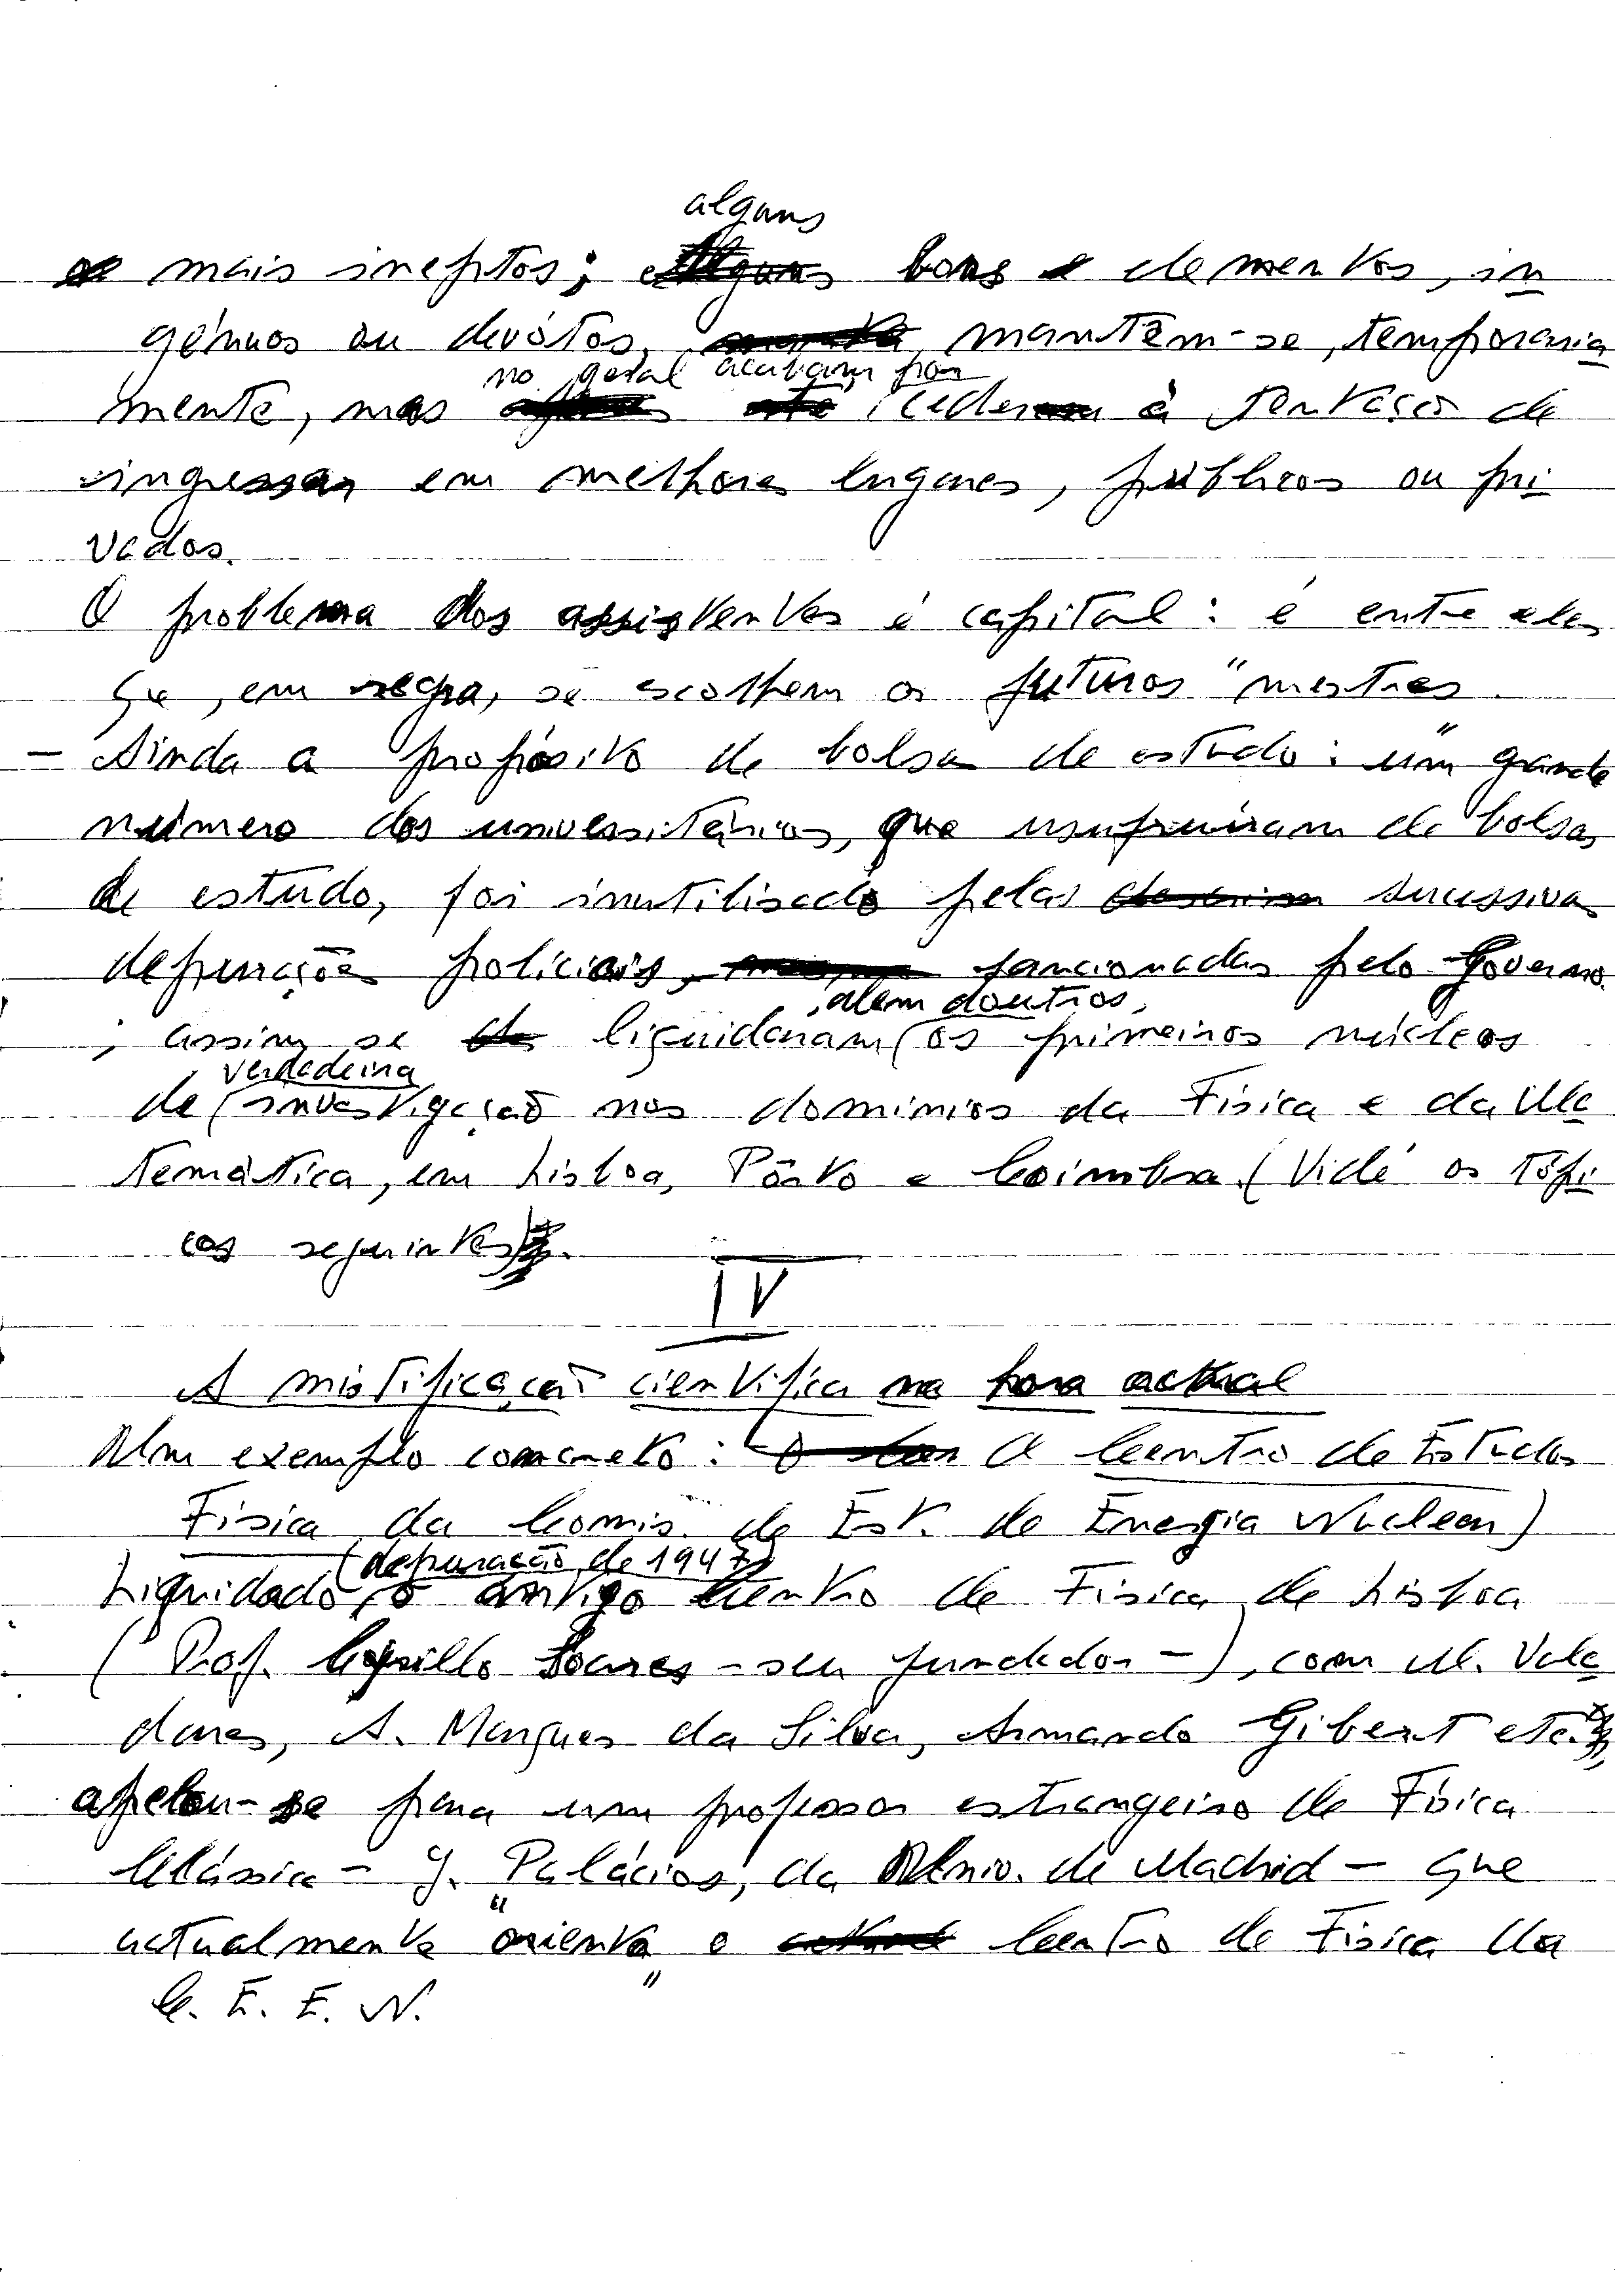 alguns
os mais ineptos; bons elementos, in
génuos ou devotos, mantêm-se, temporaria
no geral acabam por
mente, mas ceder à tentação de
ingressar em melhores lugares, públicos ou pri
vados.
O problema dos assistentes é capital: é entre eles
que, em regra, se escolhem os futuros "mestres".
- Ainda a propósito de bolsas de estudo: um grande
número dos universitários, que usufruiram de bolsas
de estudo, foi inutilizado pelas sucessivas
depurações policiais, sancionadas pelo Governo.
, além doutros,
; assim se liquidaram os primeiros núcleos
verdadeira
de investigação nos domínios da Física e da Ma
temática, em Lisboa, Pôrto e Coimbra. (Vidé os tópi
cos seguintes).
IV
A mistificação científica na hora actual
Um exemplo concreto: O Centro de Estudos
Física da Comis. de Est. de Energia Nuclear)
(depuração de 1947)
Liquidado o antigo Centro de Física de Lisboa
(Prof. Cyrillo Soares - seu fundador -), com M. Vala
dares, A. Marques da Silva, Armando Gibert etc.,
apelou-se para um professor estrangeiro de Física
Clássica - J. Palácios, da Univ. de Madrid - que
actualmente "orienta" o Centro de Física da
C. E. E. N.